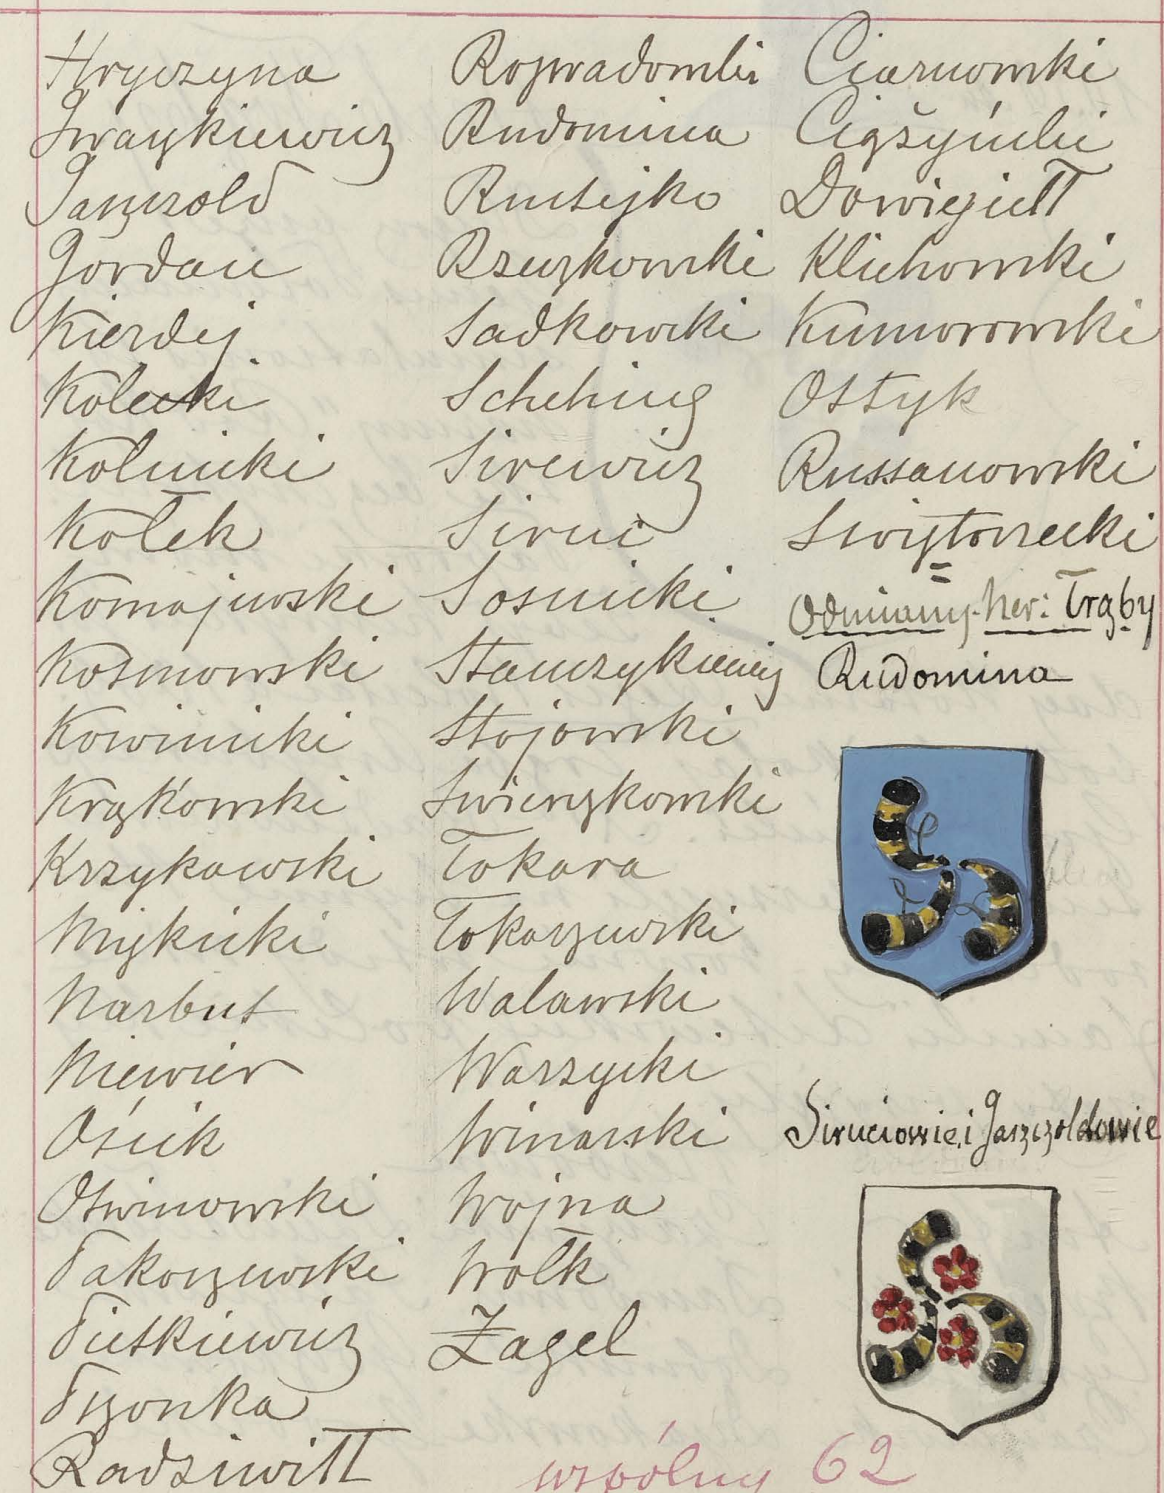 Hryczyna
Iwaszkiewicz
Jaszczold
Jordan
Kierdej
Kolecki
Kolnicki
Kołek
Komajewski
Kosmowski
Kowinicki
Krążkowski
Krzykawski
Mężnicki
Narbut
Niewier
Ościk
Otwinowski
Pakoszewski
Pietkiewicz
Pszonka
Radziwiłł
Rozwadowski
Rudomina
Rustejko
Rzeszkowski
Sadkowski
Scheling
Sirewicz
Siruć
Sosnicki
Stanczykiewicz
Stojowski
Swierzkowski
Tokara
Tokaszewski
Walawski
Warszycki
Winarski
Wojna
Wołk
Żagel
Ciarnowski
Dowiegiełł
Klichowski
Kumorowski
Ostyk
Russanowski
Swiętorzecki
Odmiany her: Trąby
Rudomina
Siruciowie i Jaszczoldowie
wspólny 62